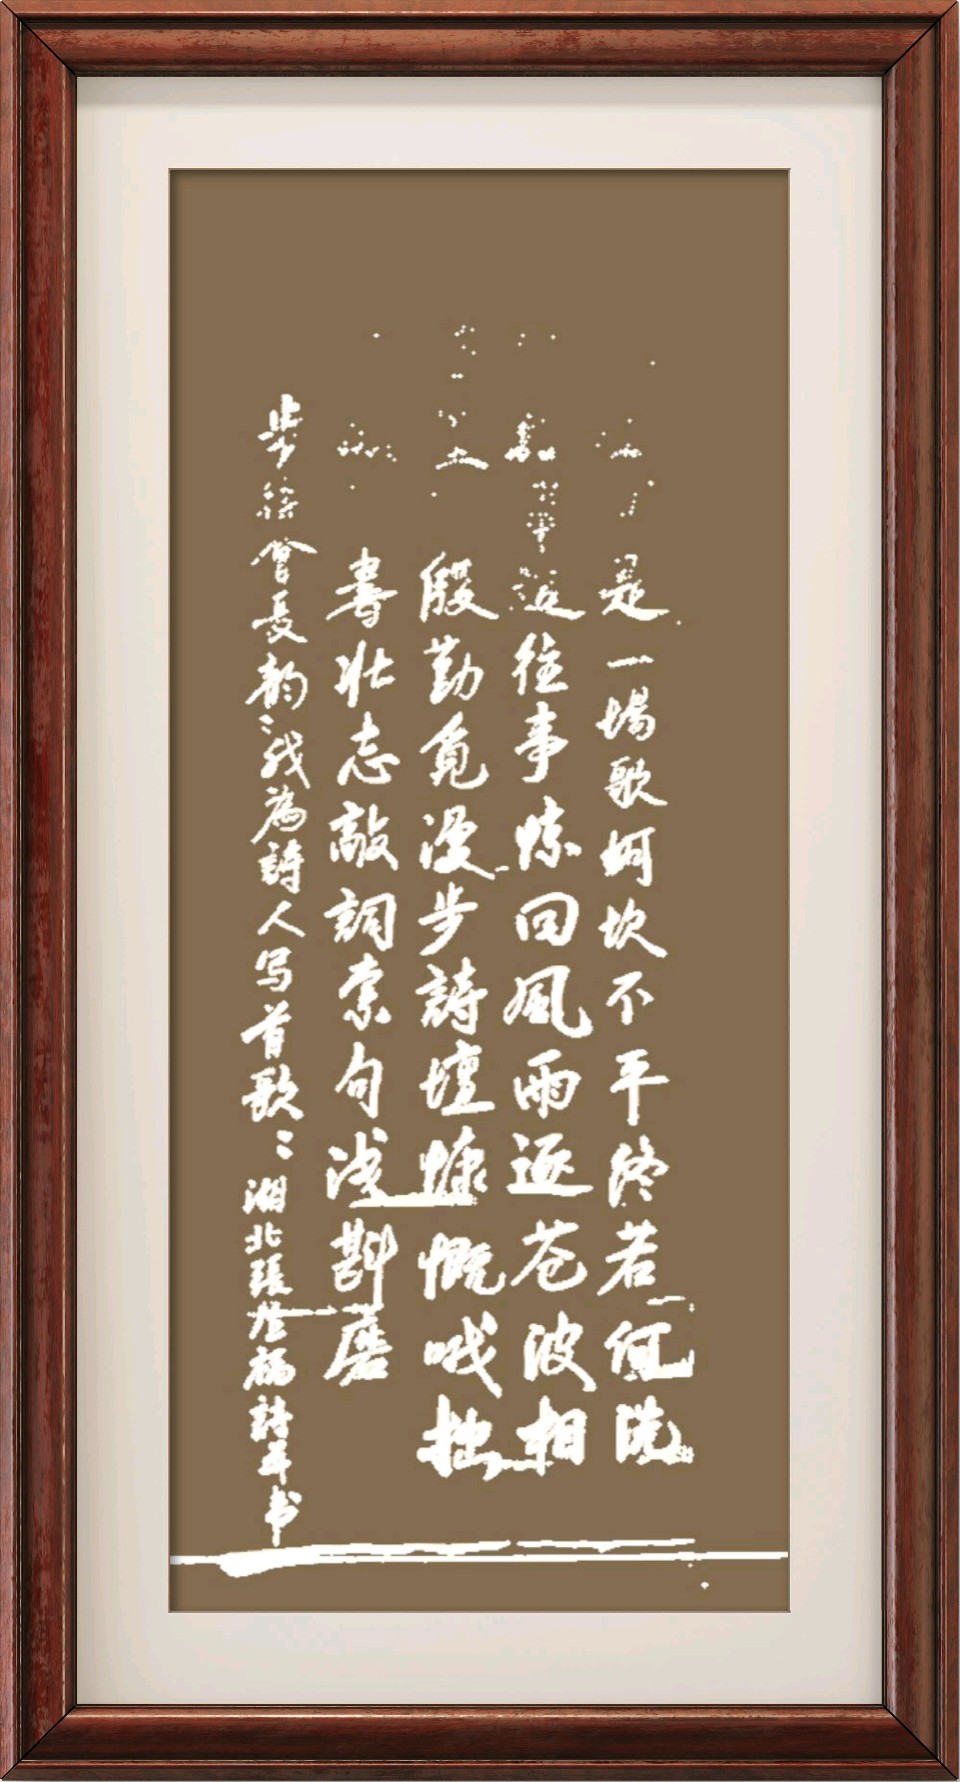 是一場歌坷坎不平终若何洗
往事惊回風雨逐苍波相
殷勤覓漫步詩壇慷慨哦拙
書壮志敲詞索句浅斟磨
步徐會長韵《我為詩人写首歌》湖北張登福詩并书